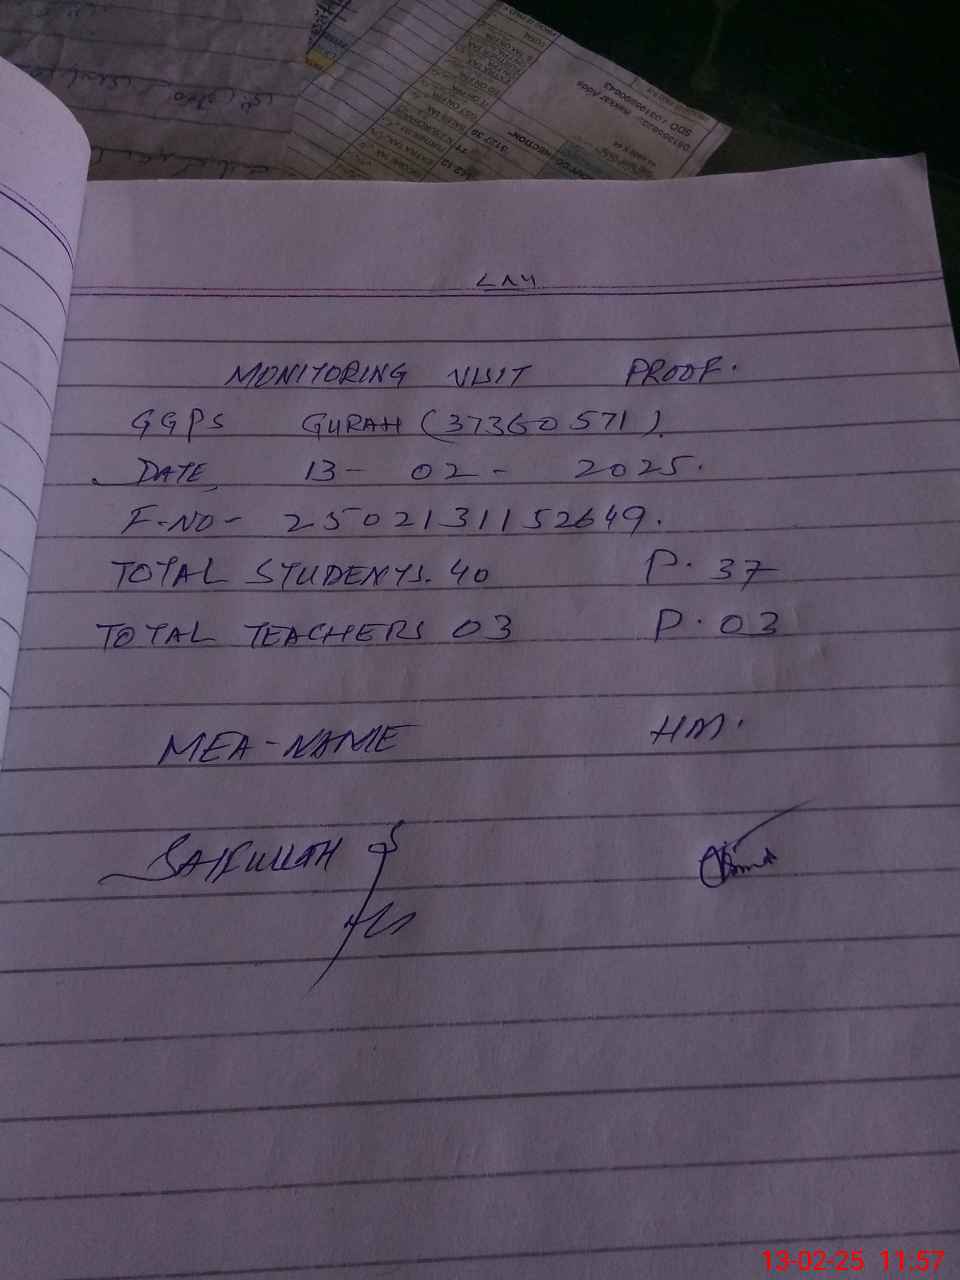 MONITORING VISIT PROOF.
GGPS GURAH (37360571).
DATE 13- 02- 2025.
F-NO- 2502131152649.
TOTAL STUDENTS. 40 P. 37
TOTAL TEACHERS 03 P. 03
MEA-NAME HM.
SAIFULLAH
13-02-25 11:57